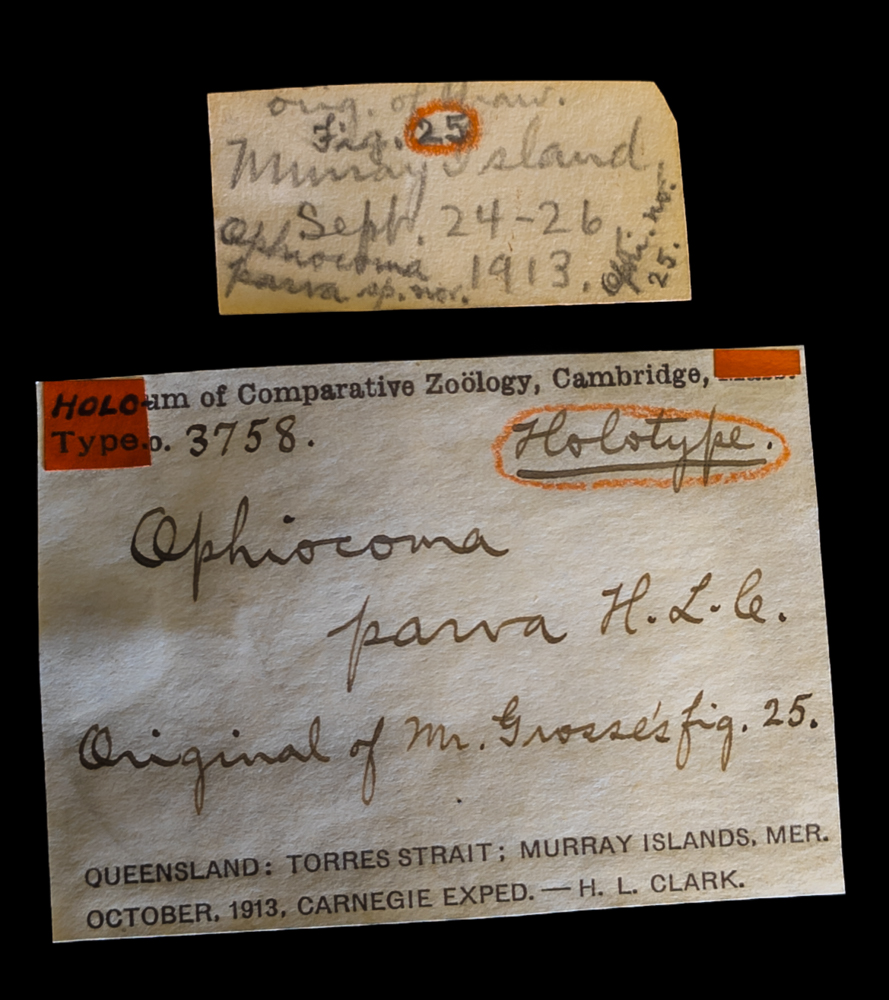 orig. of draw.
Fig. 25
Murray Island,
Sept. 24-26
1913.
Ophiocoma
parva sp. nov.
Ophi. no.
25.
HOLO um of Comparative Zoölogy, Cambridge, Mass.
Type o. 3758.
Holotype.
Ophiocoma
parva H. L. C.
Original of Mr. Grosse's fig. 25.
QUEENSLAND: TORRES STRAIT; MURRAY ISLANDS, MER.
OCTOBER, 1913, CARNEGIE EXPED. — H. L. CLARK.